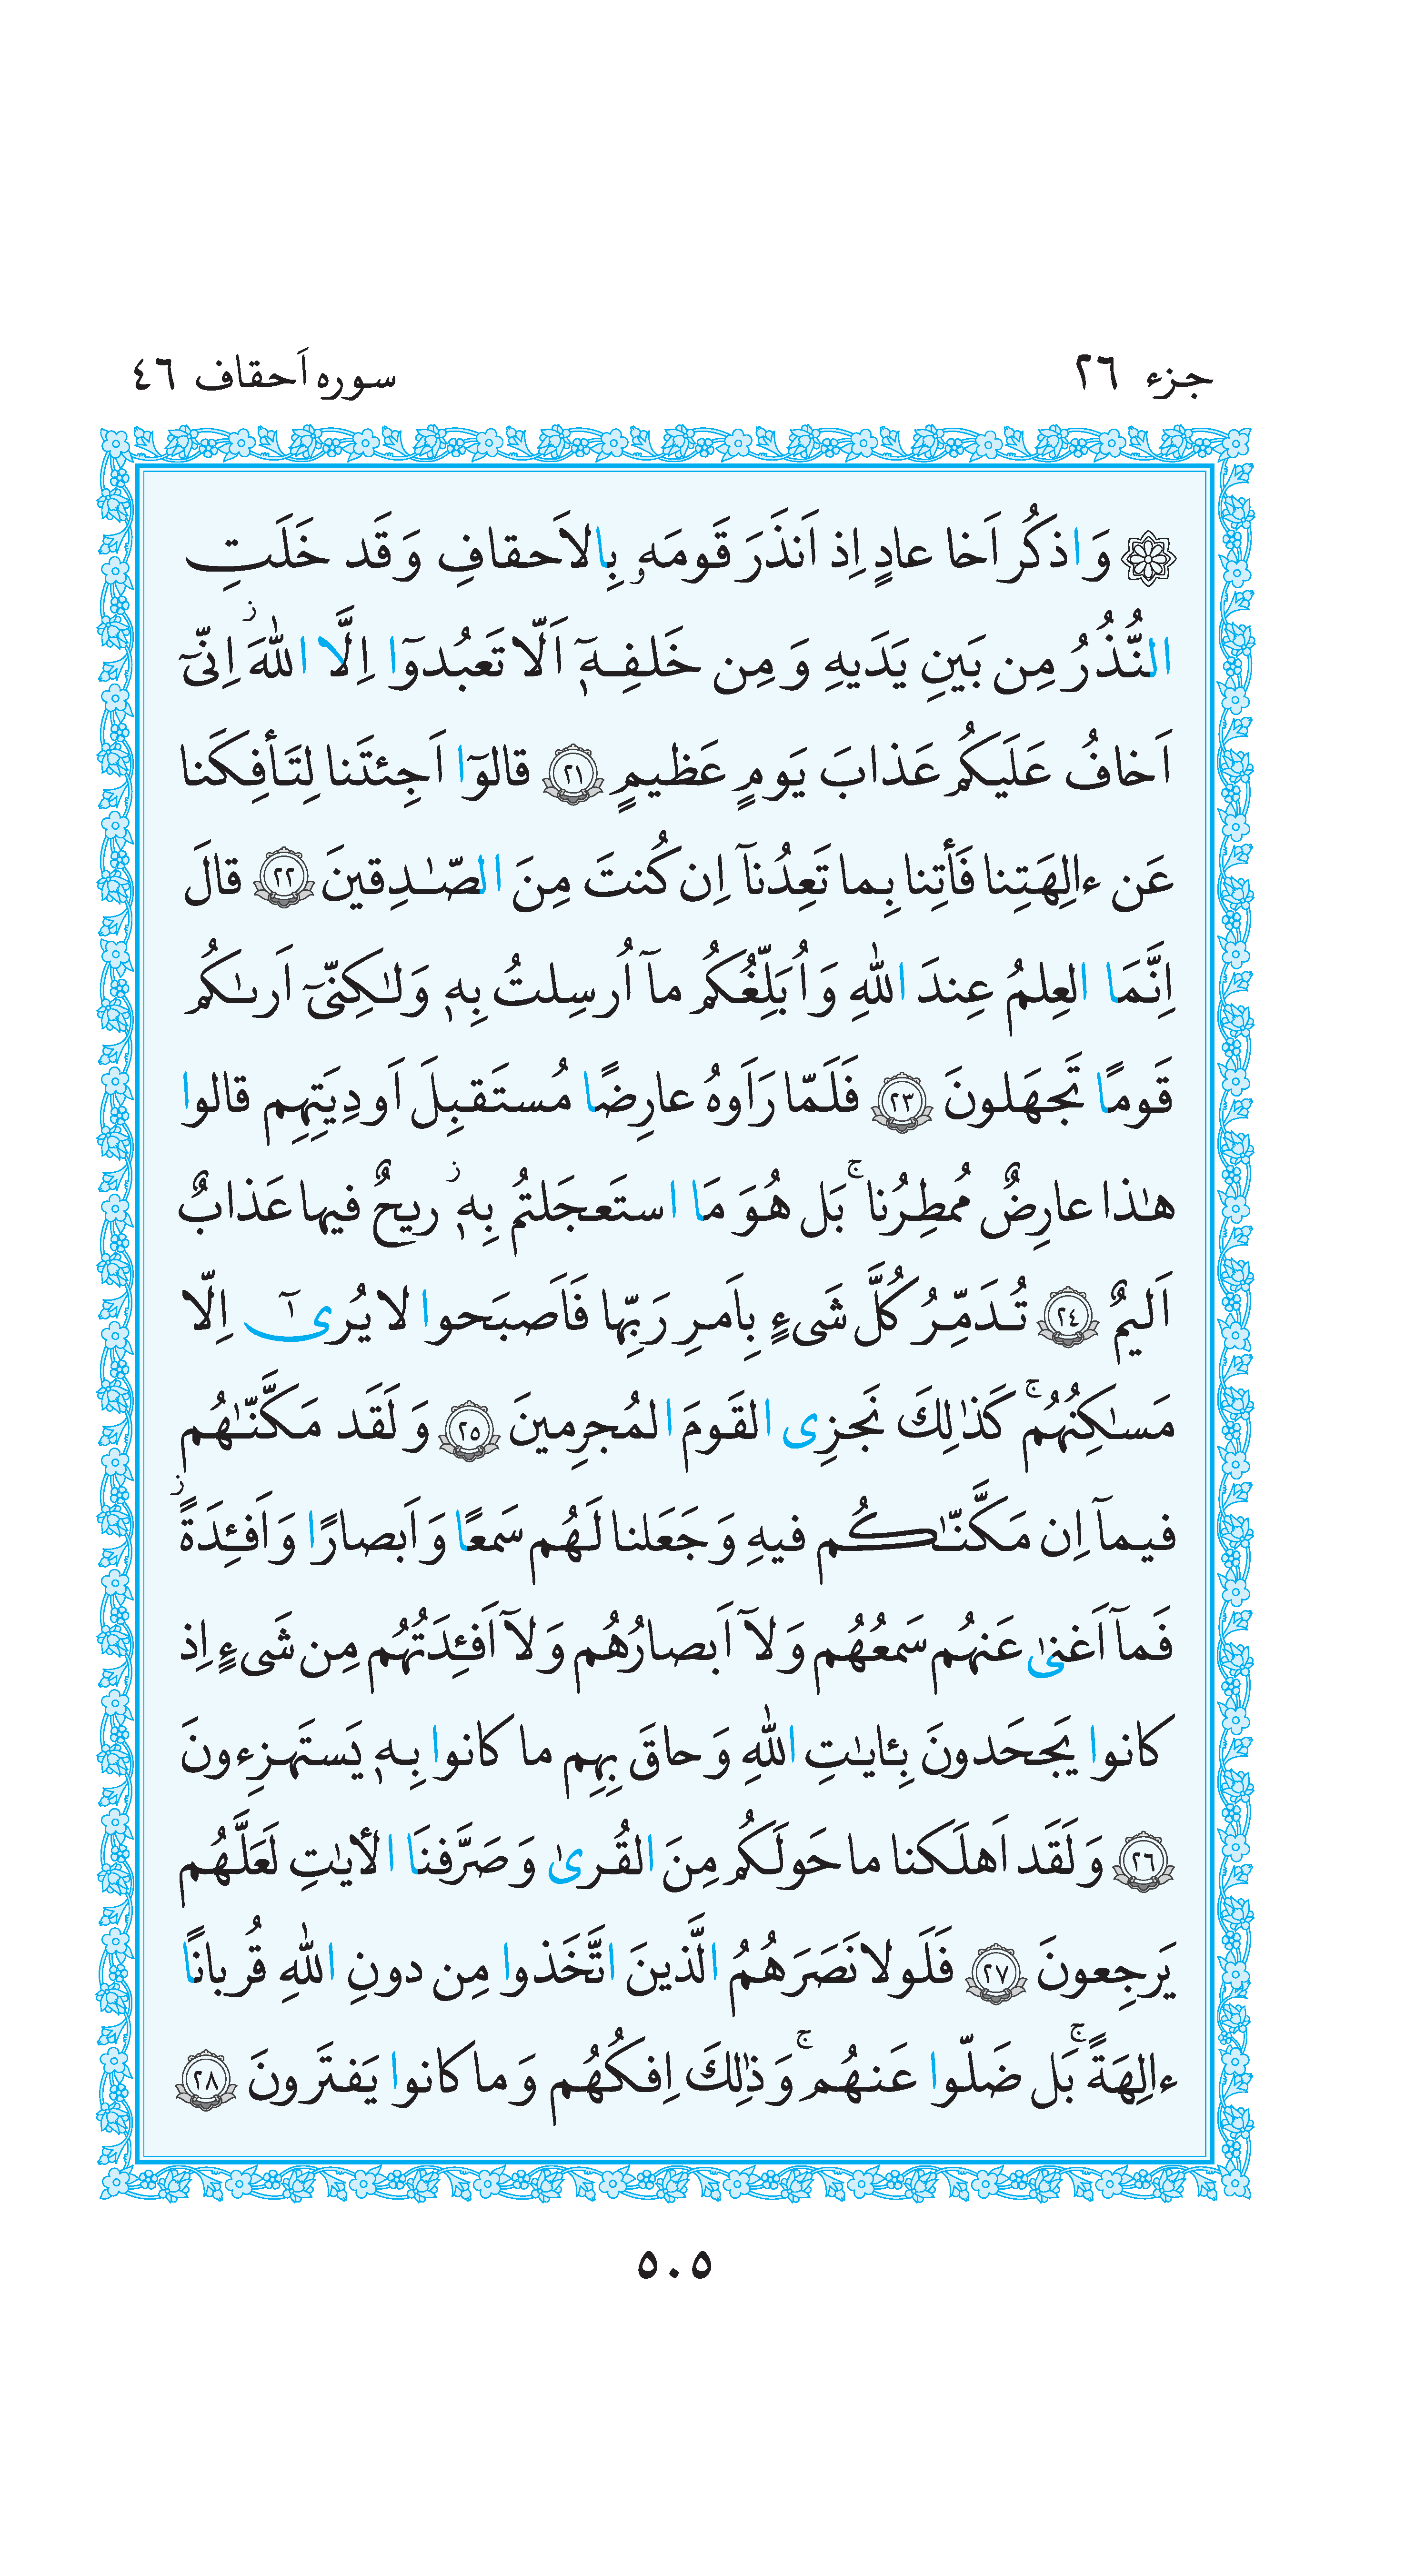 جزء ٢٦
سوره اَحقاف ٤٦
وَ اذكُر اَخا عادٍ اِذ اَنذَرَ قَومَهۥ بِالاَحقافِ وَ قَد خَلَتِ
النُّذُرُ مِن بَينِ يَدَيهِ وَ مِن خَلفِهٖٓ اَلّا تَعبُدوٓا اِلَّا اللّٰهَ ۡز اِنّىٓ
اَخافُ عَلَيكُم عَذابَ يَومٍ عَظيمٍ ٢١ قالوٓا اَجِئتَنا لِتَأفِكَنا
عَن ءالِهَتِنا فَأتِنا بِما تَعِدُنآ اِن كُنتَ مِنَ الصّٰدِقينَ ٢٢ قالَ
اِنَّمَا العِلمُ عِندَ اللّٰهِ وَ اُبَلِّغُكُم مآ اُرسِلتُ بِهٖ وَلٰكِنّىٓ اَرىٰكُم
قَومًا تَجهَلونَ ٢٣ فَلَمّا رَاَوهُ عارِضًا مُستَقبِلَ اَودِيَتِهِم قالوا
هٰذا عارِضٌ مُمطِرُنا ۚ بَل هُوَ مَا استَعجَلتُم بِهٖ ز ريحٌ فيها عَذابٌ
اَليمٌ ٢٤ تُدَمِّرُ كُلَّ شَىءٍ بِاَمرِ رَبِّها فَاَصبَحوا لا يُرىٰٓ اِلّا
مَسٰكِنُهُم ۚ كَذٰلِكَ نَجزِى القَومَ المُجرِمينَ ٢٥ وَ لَقَد مَكَّنّٰهُم
فيمآ اِن مَكَّنّٰكُم فيهِ وَ جَعَلنا لَهُم سَمعًا وَ اَبصارًا وَ اَفئِدَةً ز
فَمآ اَغنىٰ عَنهُم سَمعُهُم وَ لآ اَبصارُهُم وَ لآ اَفئِدَتُهُم مِن شَىءٍ اِذ
كانوا يَجحَدونَ بِئايٰتِ اللّٰهِ وَ حاقَ بِهِم ما كانوا بِهٖ يَستَهزِءونَ
٢٦ وَ لَقَد اَهلَكنا ما حَولَكُم مِنَ القُرىٰ وَ صَرَّفنَا الأيٰتِ لَعَلَّهُم
يَرجِعونَ ٢٧ فَلَولا نَصَرَهُمُ الَّذينَ اتَّخَذوا مِن دونِ اللّٰهِ قُربانًا
ءالِهَةً ۚ بَل ضَلّوا عَنهُم ۚ وَ ذٰلِكَ اِفكُهُم وَ ما كانوا يَفتَرونَ ٢٨
٥٠٥